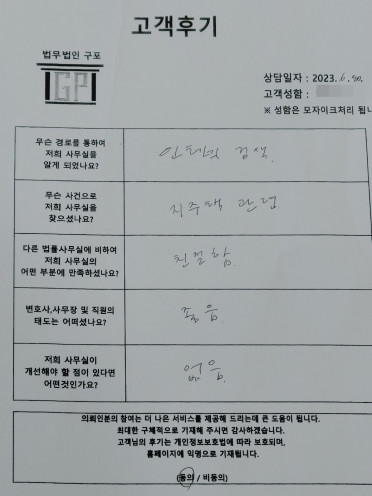 고객후기
법무법인 구포
GP
상담일자 : 2023. 6. 30.
고객성함 :
※ 성함은 모자이크처리 됩니
무슨 경로를 통하여
저희 사무실을
알게 되었나요?
인터넷 검색.
무슨 사건으로
저희 사무실을
찾으셨나요?
지주택 관련
다른 법률사무실에 비하여
저희 사무실의
어떤 부분에 만족하셨나요?
친절함.
변호사,사무장 및 직원의
태도는 어떠셨나요?
좋음
저희 사무실이
개선해야 할 점이 있다면
어떤것인가요?
없음.
의뢰인분의 참여는 더 나은 서비스를 제공해 드리는데 큰 도움이 됩니다.
최대한 구체적으로 기재해 주시면 감사하겠습니다.
고객님의 후기는 개인정보보호법에 따라 보호되며,
홈페이지에 익명으로 기재됩니다.
(동의 / 비동의)